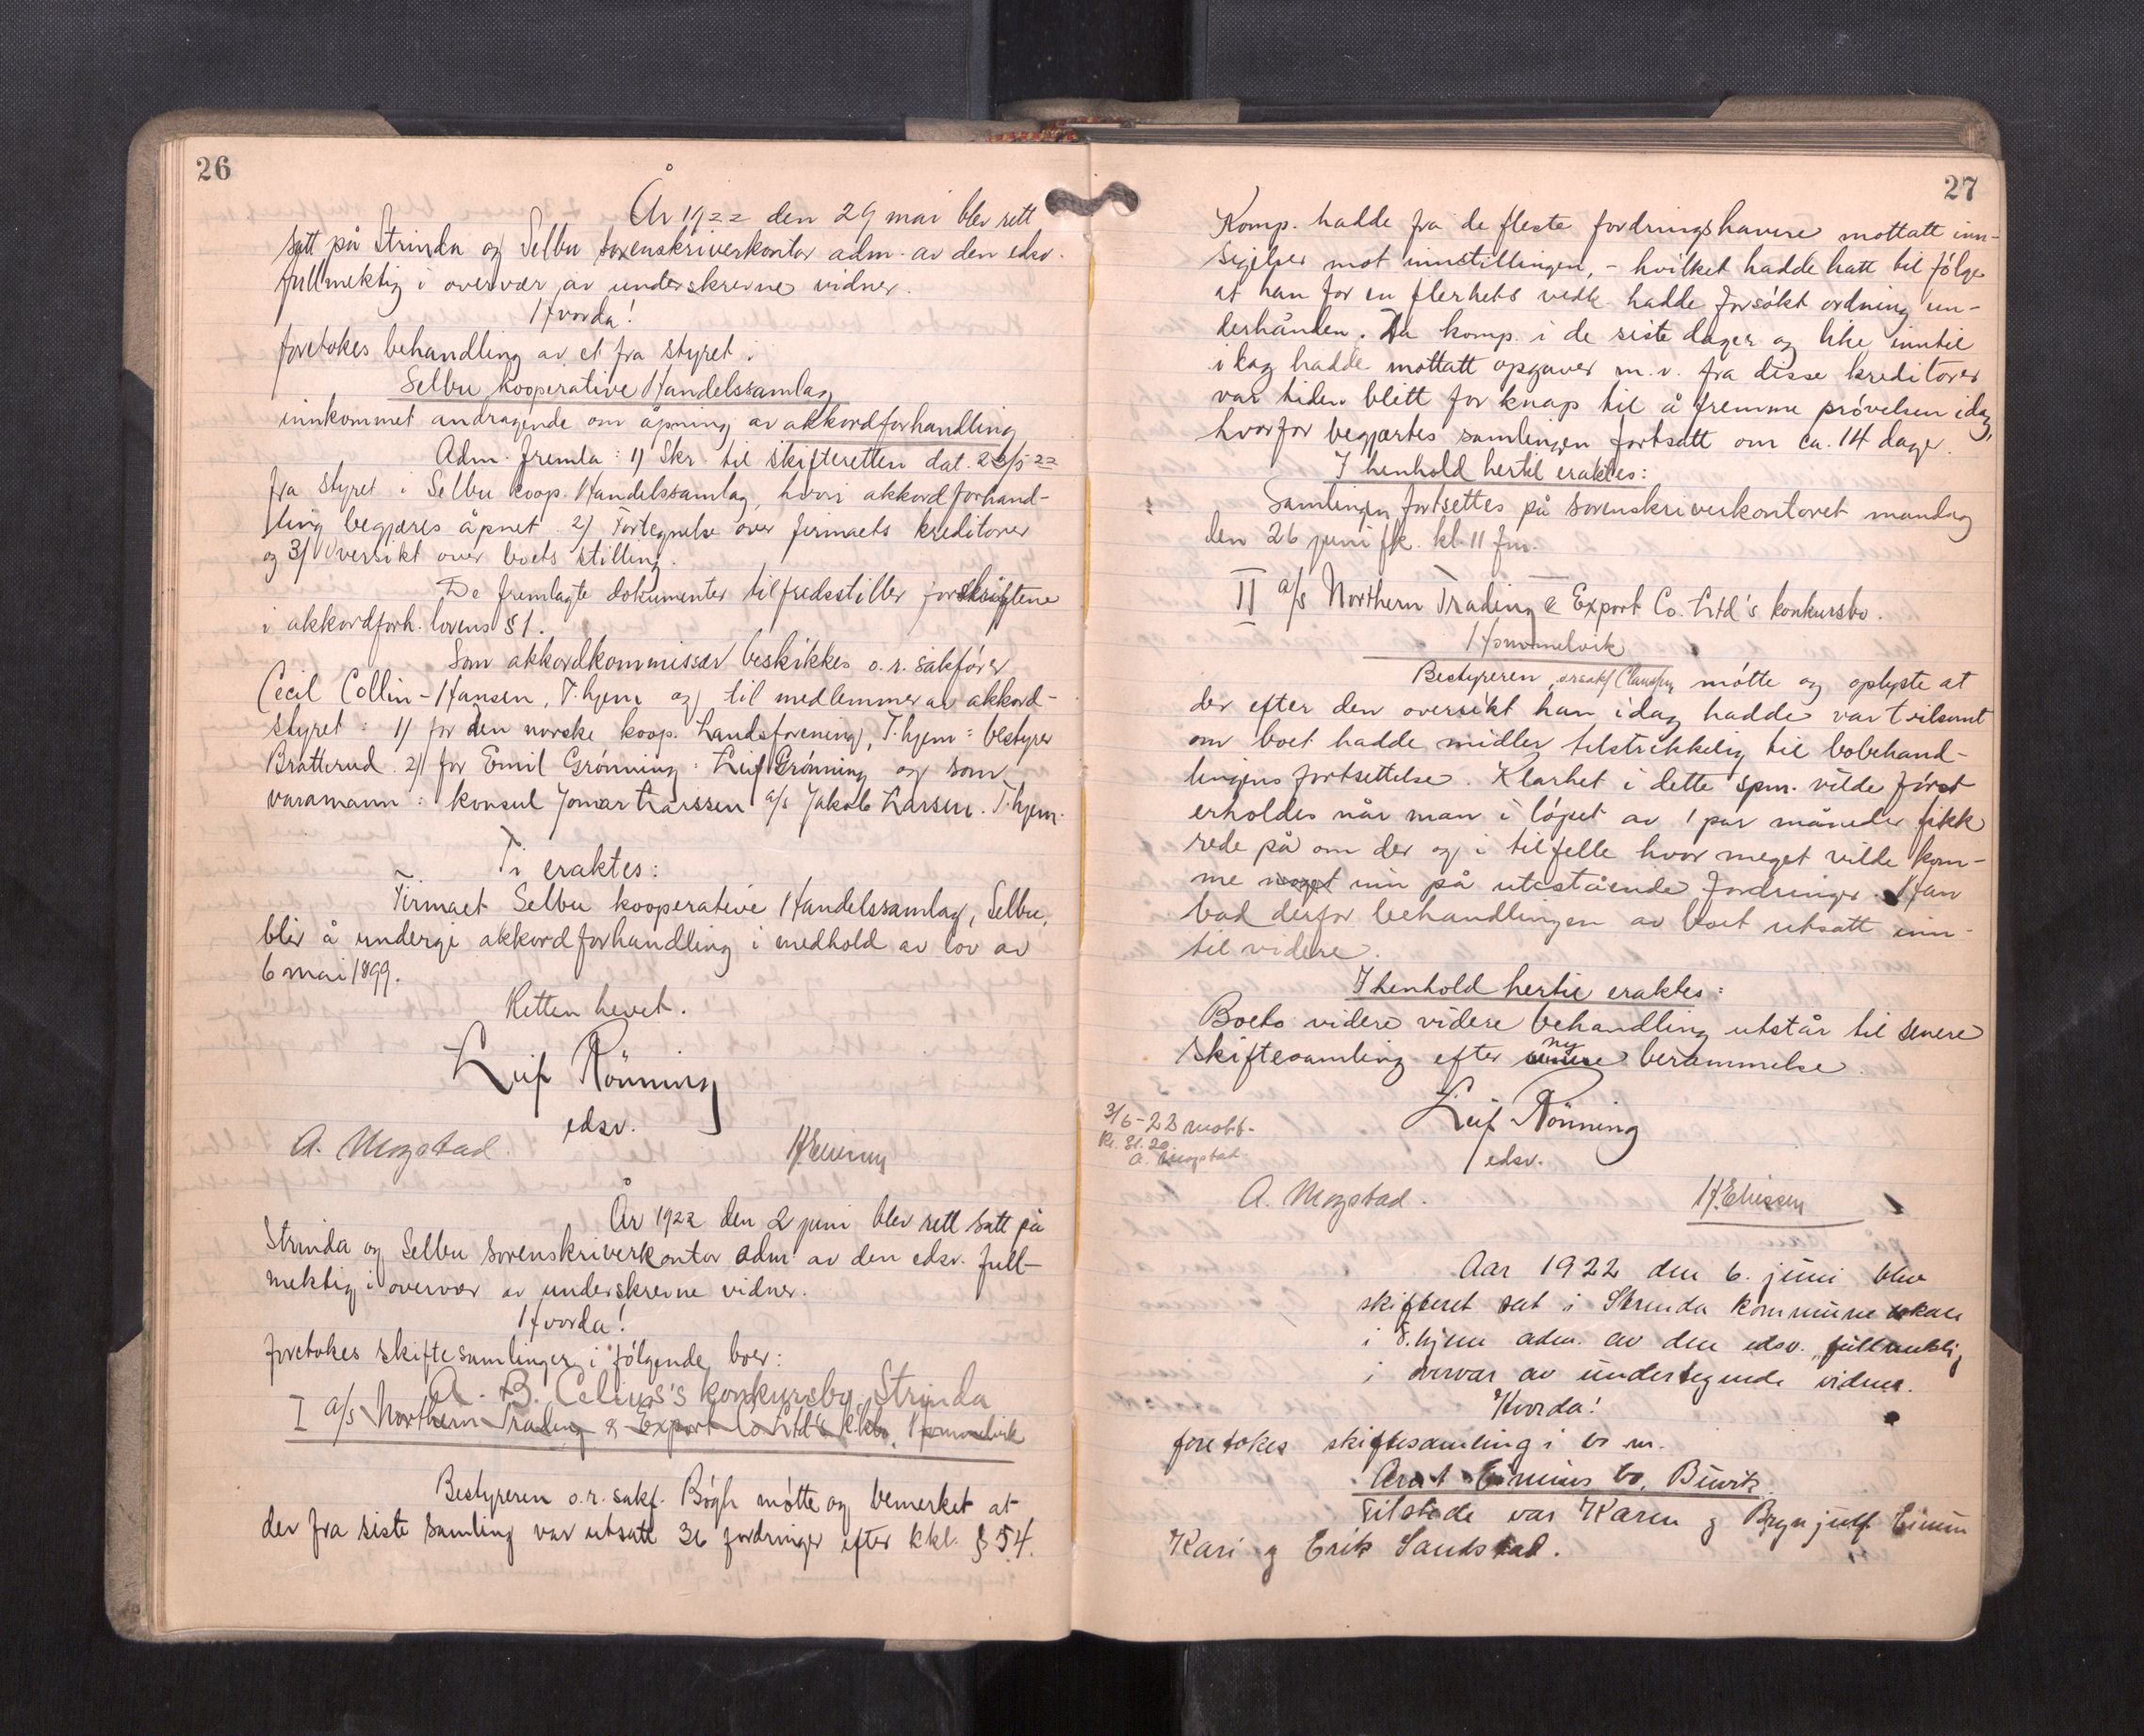 26
År 1922 den 29 mai blev rett
satt på Strinda og Selbu sorenskriverkontor adm. av den edsv.
fullmektig i overvær av underskrevne vidner.
Hvorda!
foretokes behandling av et fra styret i
Selbu kooperative Handelssamlag
innkommet andragende om åpning av akkordforhandling
Adm. fremla: 1) Skr. til skifteretten dat. 23/5 22
fra styret i Selbu koop. Handelssamlag, hvori akkordforhand-
ling begjæres åpnet. 2) Fortegnelse over firmaets kreditorer
og 3) Oversikt over boets stilling.
De fremlagte dokumenter tilfredsstiller forskriftene
i akkordforh. lovens § 1.
Som akkordkommissær beskikkes o.r. sakfører
Cecil Collin-Hansen, T.hjem og til medlemmer av akkord-
styret: 1) for den norske koop. Landsforening, T.hjem: bestyrer
Bratterud. 2) for Emil Grønning: Leif Grønning og som
varamann: konsul Jomar Larssen a/s Jakob Larsen. T.hjem.
Ti eraktes:
Firmaet Selbu kooperative Handelssamlag, Selbu,
blir å undergi akkordforhandling i medhold av lov av
6 mai 1899.
Retten hevet.
Leif Rönning
edsv.
A. Mogstad. H. Eliessen
År 1922 den 2 juni blev rett satt på
Strinda og Selbu sorenskriverkontor adm. av den edsv. full-
mektig i overvær av underskrevne vidner.
Hvorda!
foretokes skiftesamlinger i følgende boer:
A. B. Celius's konkursbo, Strinda
I a/s Northern Trading & Export Co Ltd's k.bo, Hommelvik
Bestyreren o.r. sakf. Bøgh møtte og bemerket at
der fra siste samling var utsatt 36 fordringer efter kkl. § 54.
27
Komp. hadde fra de fleste fordringshavere mottatt inn-
sigelser mot innstillingen, - hvilket hadde hatt til følge
at han for en flerhets vedk. hadde forsøkt ordning un-
derhånden. Da komp. i de siste dager og like inntil
i dag hadde mottatt opgaver m.v. fra disse kreditorer
var tiden blitt for knap til å fremme prøvelsen idag,
hvorfor begjærtes samlingen fortsatt om ca. 14 dager.
I henhold hertil eraktes:
Samlingen fortsettes på sorenskriverkontoret mandag
den 26 juni fk. kl. 11 fm.
II a/s Northern Trading & Export Co. Ltd's konkursbo.
Hommelvik
Bestyreren, orsakf Clausen, møtte og oplyste at
der efter den oversikt han idag hadde var tvilsomt
om boet hadde midler tilstrekkelig til bobehand-
lingens fortsettelse. Klarhet i dette spm. vilde først
erholdes når man i løpet av 1 par måneder fikk
rede på om der og i tilfelle hvor meget vilde kom-
me noget inn på utestående fordringer. Han
bad derfor behandlingen av boet utsatt inn-
til videre.
I henhold hertil eraktes:
Boets videre videre behandling utstår til senere
skiftesamling efter ny berammelse.
Leif Rönning
edsv.
3/6-22 mott.
Kr. 31.20.
A. Mogstad
A. Mogstad. H. Eliessen
Aar 1922 den 6. juni blev
skifteret sat i Strinda kommune lokale
i T.hjem adm. av den edsv. fullmektig
i overvær av undertegnede vidner.
Hvorda!
foretokes skiftesamling i bo m.
bo, Buvik.
Tilstede var Karen og Brynjulf
Kari og Erik Sandstad.